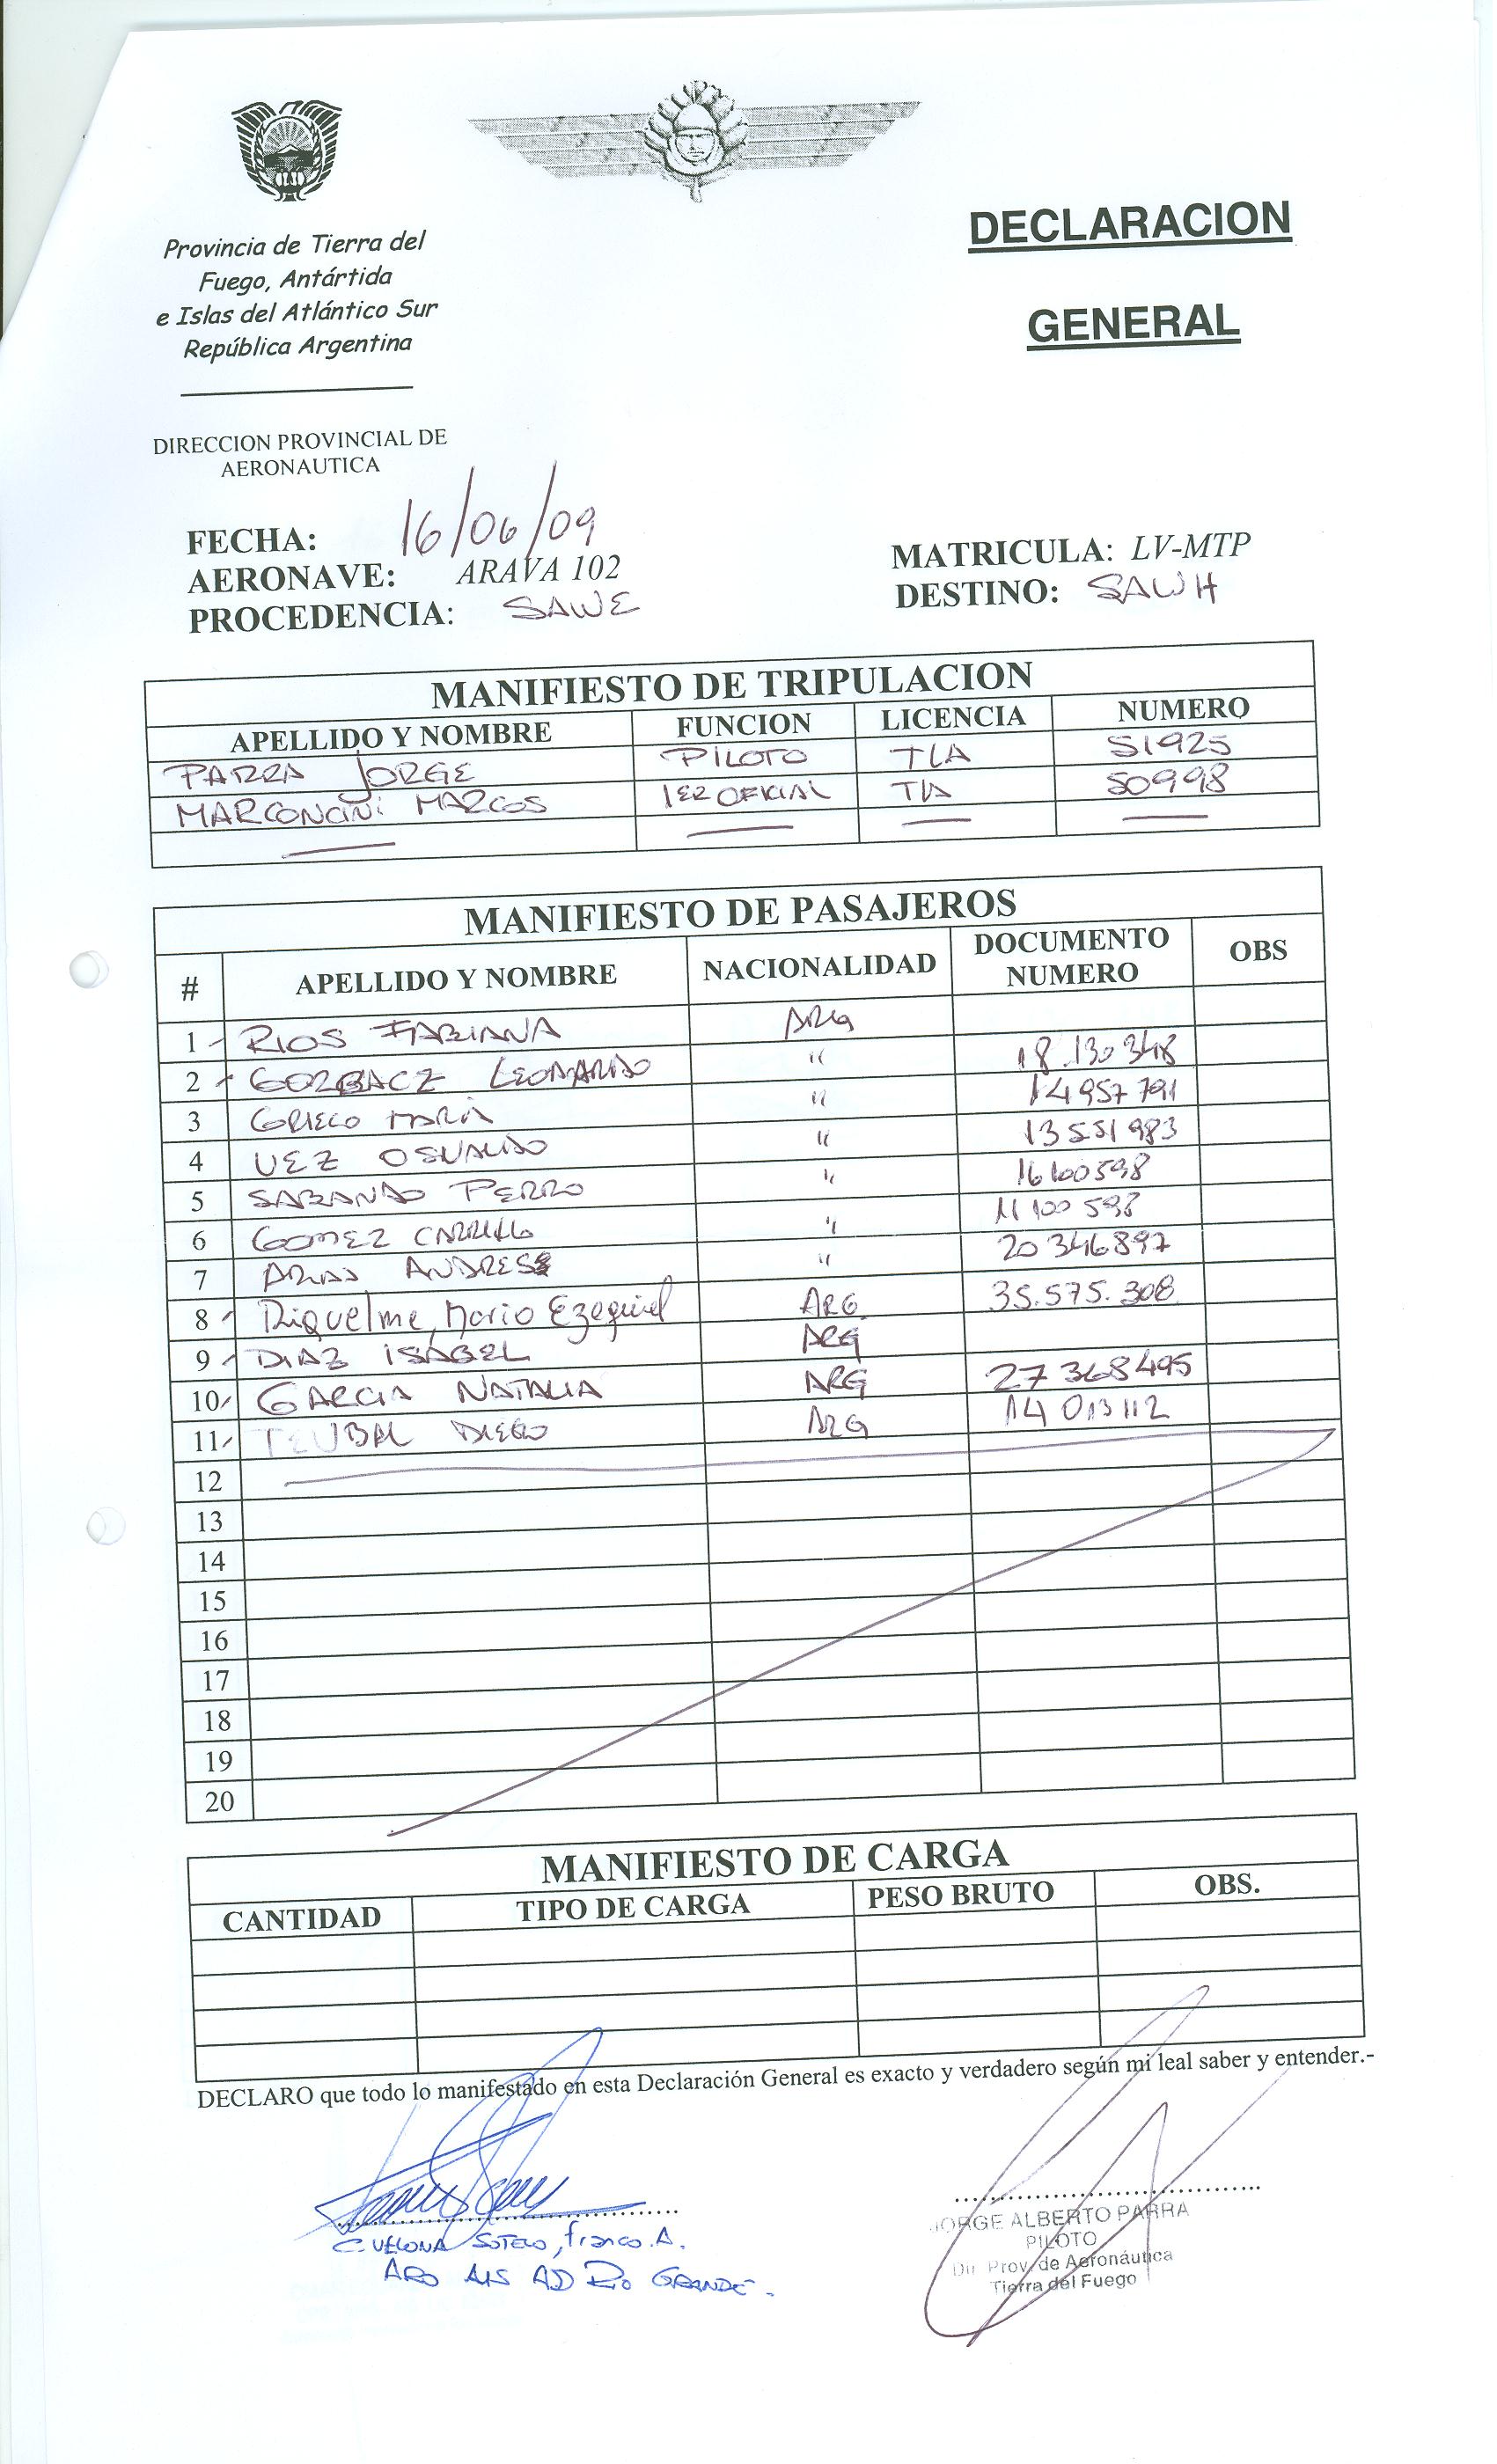 DECLARACION
GENERAL
Provincia de Tierra del
Fuego, Antártida
e Islas del Atlántico Sur
República Argentina
DIRECCION PROVINCIAL DE
AERONAUTICA
FECHA: 16/06/09
AERONAVE: ARAVA 102 MATRICULA: LV-MTP
PROCEDENCIA: SAWE DESTINO: SAWH
MANIFIESTO DE TRIPULACION
APELLIDO Y NOMBRE FUNCION LICENCIA NUMERO
PARRA JORGE PILOTO TLA 51925
MARCONCINI MARCOS 1ER OFICIAL TLA 50998
MANIFIESTO DE PASAJEROS
# APELLIDO Y NOMBRE NACIONALIDAD DOCUMENTO NUMERO OBS
1 RIOS FABIANA ARG
2 GORBACZ LEONARDO " 18.130348
3 GRIECO MARIA " 14957791
4 VEZ OSVALDO " 13551983
5 SABANDO PERRO " 16100598
6 GOMEZ CARRILLO " 11100598
7 ARIAS ANDRES " 20346897
8 Riquelme, Mario Ezequiel ARG 35.575.308
9 DIAZ ISABEL ARG
10 GARCIA NATALIA ARG 27368495
11 TEUBAL DIEGO ARG 14013112
12
13
14
15
16
17
18
19
20
MANIFIESTO DE CARGA
CANTIDAD TIPO DE CARGA PESO BRUTO OBS.
DECLARO que todo lo manifestado en esta Declaración General es exacto y verdadero según mi leal saber y entender.-
C. VELONA SOTELO, Franco. A.
ARO AIS AD Rio GRANDE.
JORGE ALBERTO PARRA
PILOTO
Dir. Prov. de Aeronáutica
Tierra del Fuego